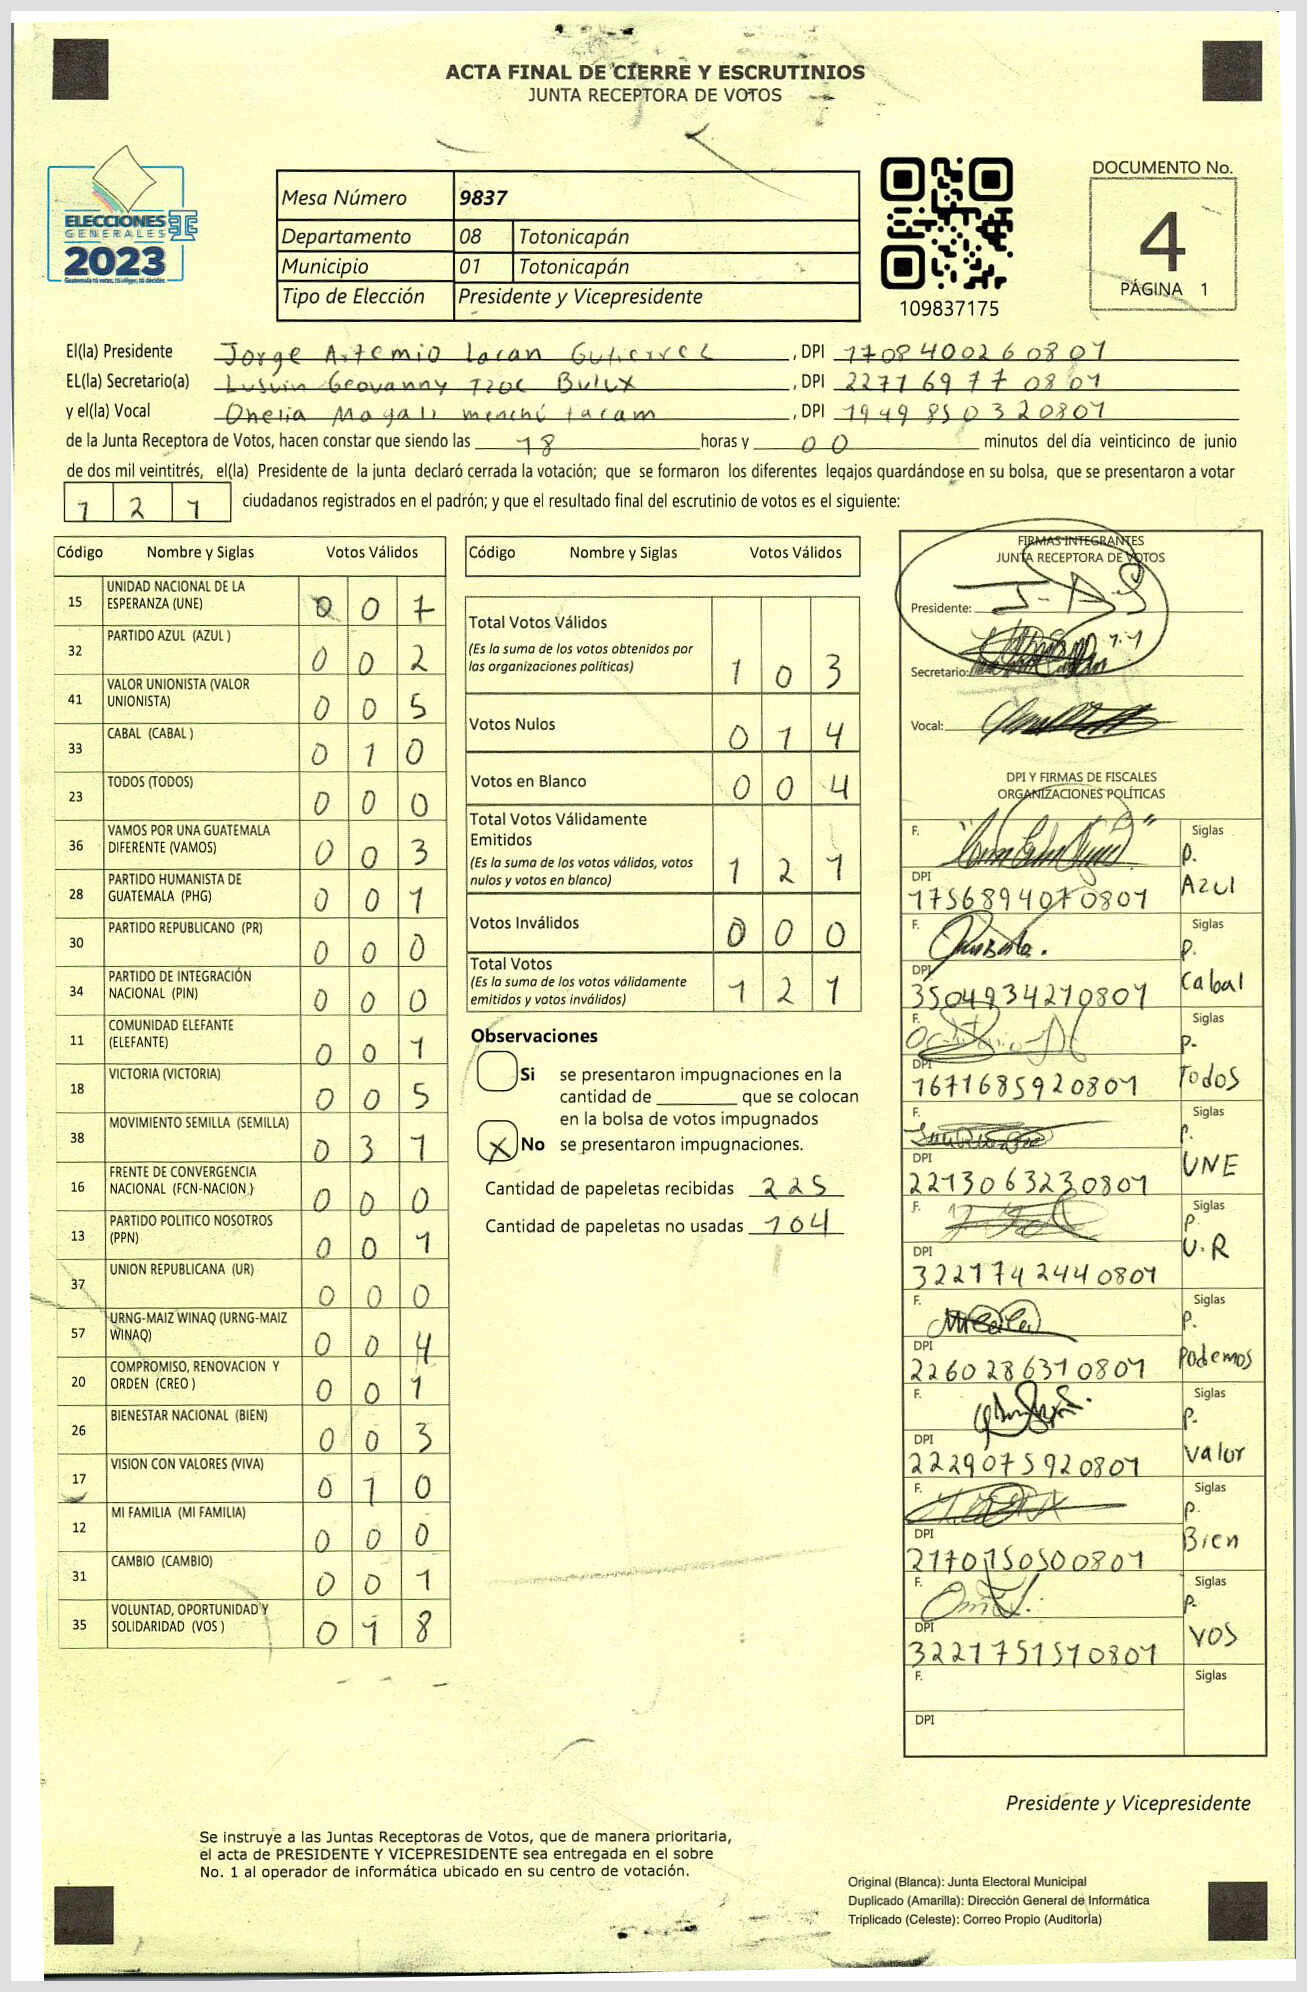 ACTA FINAL DE CIERRE Y ESCRUTINIOS
JUNTA RECEPTORA DE VOTOS
ELECCIONES
GENERALES
2023
Guatemala tú votas, tú eliges, tú decides
Mesa Número 9837
Departamento 08 Totonicapán
Municipio 01 Totonicapán
Tipo de Elección Presidente y Vicepresidente
109837175
DOCUMENTO No.
4
PÁGINA 1
El(la) Presidente Jorge Artemio Lacan Gutierrez , DPI 1708400260801
EL(la) Secretario(a) Lusvin Geovanny Tzoc Bulux , DPI 2277697770801
y el(la) Vocal Onelia Magali menchú tacam , DPI 1949850320801
de la Junta Receptora de Votos, hacen constar que siendo las 18 horas y 00 minutos del día veinticinco de junio
de dos mil veintitrés, el(la) Presidente de la junta declaró cerrada la votación; que se formaron los diferentes legajos guardándose en su bolsa, que se presentaron a votar
121 ciudadanos registrados en el padrón; y que el resultado final del escrutinio de votos es el siguiente:
Código Nombre y Siglas Votos Válidos
15 UNIDAD NACIONAL DE LA ESPERANZA (UNE) 007
32 PARTIDO AZUL (AZUL ) 002
41 VALOR UNIONISTA (VALOR UNIONISTA) 005
33 CABAL (CABAL ) 010
23 TODOS (TODOS) 000
36 VAMOS POR UNA GUATEMALA DIFERENTE (VAMOS) 003
28 PARTIDO HUMANISTA DE GUATEMALA (PHG) 001
30 PARTIDO REPUBLICANO (PR) 000
34 PARTIDO DE INTEGRACIÓN NACIONAL (PIN) 000
11 COMUNIDAD ELEFANTE (ELEFANTE) 001
18 VICTORIA (VICTORIA) 005
38 MOVIMIENTO SEMILLA (SEMILLA) 031
16 FRENTE DE CONVERGENCIA NACIONAL (FCN-NACION ) 000
13 PARTIDO POLITICO NOSOTROS (PPN) 001
37 UNION REPUBLICANA (UR) 000
57 URNG-MAIZ WINAQ (URNG-MAIZ WINAQ) 004
20 COMPROMISO, RENOVACION Y ORDEN (CREO ) 001
26 BIENESTAR NACIONAL (BIEN) 003
17 VISION CON VALORES (VIVA) 010
12 MI FAMILIA (MI FAMILIA) 000
31 CAMBIO (CAMBIO) 001
35 VOLUNTAD, OPORTUNIDAD Y SOLIDARIDAD (VOS ) 018
Código Nombre y Siglas Votos Válidos
Total Votos Válidos
(Es la suma de los votos obtenidos por
las organizaciones políticas) 103
Votos Nulos 014
Votos en Blanco 004
Total Votos Válidamente
Emitidos
(Es la suma de los votos válidos, votos
nulos y votos en blanco) 121
Votos Inválidos 000
Total Votos
(Es la suma de los votos válidamente
emitidos y votos inválidos) 121
Observaciones
Si se presentaron impugnaciones en la
cantidad de ________ que se colocan
en la bolsa de votos impugnados
X No se presentaron impugnaciones.
Cantidad de papeletas recibidas 225
Cantidad de papeletas no usadas 104
FIRMAS INTEGRANTES
JUNTA RECEPTORA DE VOTOS
Presidente:
Secretario:
Vocal:
DPI Y FIRMAS DE FISCALES
ORGANIZACIONES POLÍTICAS
F. Siglas
P. Azul
DPI
1756894070801
F. Siglas
P. Cabal
DPI
3504934210801
F. Siglas
P. Todos
DPI
1671685920801
F. Siglas
P. UNE
DPI
2213063230801
F. Siglas
P. U.R
DPI
3221742440801
F. Siglas
P. Podemos
DPI
2260286310801
F. Siglas
P. Valor
DPI
2229075920801
F. Siglas
P. Bien
DPI
2170150500801
F. Siglas
P. VOS
DPI
3221751510801
F. Siglas
DPI
Presidente y Vicepresidente
Se instruye a las Juntas Receptoras de Votos, que de manera prioritaria,
el acta de PRESIDENTE Y VICEPRESIDENTE sea entregada en el sobre
No. 1 al operador de informática ubicado en su centro de votación.
Original (Blanca): Junta Electoral Municipal
Duplicado (Amarilla): Dirección General de Informática
Triplicado (Celeste): Correo Propio (Auditoría)